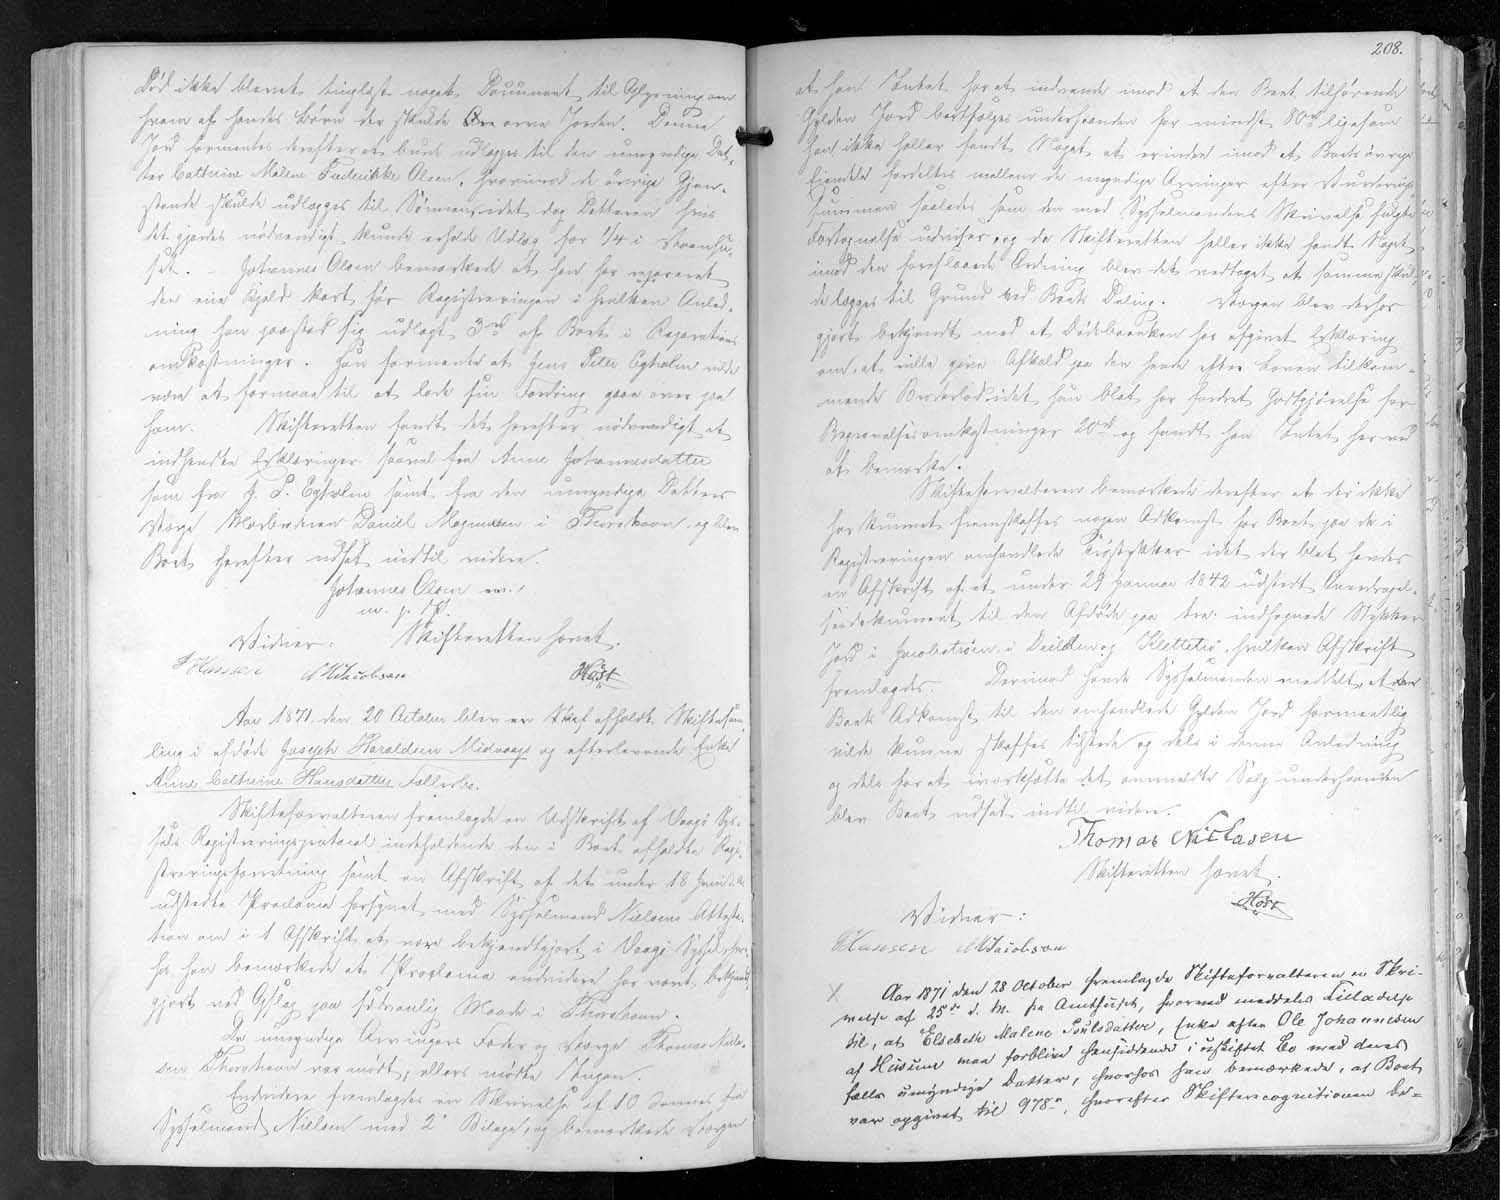 Død ikke blevet tinglæst noget Document til Oplysning om
hvem af hendes Børn der skulde arve Jorden. Denne
Jord formentes derefter at burde udlægges til den umyndige Dat-
ter Cathrine Malene Frederikke Olsen, hvorimod de øvrige Gjen-
stande skulde udlægges til Sønnen, idet dog Datteren hvis
det gjordes nødvendigt kunde erholde Udlæg for 1/4 i Vaanhu-
set. - Johannes Olsen bemærkede at han har repareret
den ene Kjeld kort før Registreringen i hvilken Anled-
ning han paastod sig udlagt 3 rd af Boet i Reparations
omkostninger. Han formente at Jens Peter Egholm vilde
være at formaae til at lade sin Fordring gaae over paa
ham. Skifteretten fandt det herefter nødvendigt at
indhente Erklæringer saavel fra Anne Johannesdatter
som fra J. P. Egholm samt fra den umyndige Datters
Værge Morbroderen Daniel Magnussen i Thorshavn, og blev
Boet herefter udsat indtil videre.
Johannes Olsen
m. p. P.
Vidner: Skifteretten hævet.
Hansen MJacobsen Høst
Aar 1871 den 20 October blev en Skifteret afholdt Skiftesam-
ling i afdøde Joseph Haraldsen Midvaags og efterlevende Enke
Anne Cathrine Hansdatters Fællesbo.
Skifteforvalteren fremlagde en Udskrift af Vaagø Sys-
sels Registreringsprotocol indeholdende den i Boet afholdte Regi-
streringsforretning samt en Afskrift af det under 18 Juni d. A.
udstedte Proclama forsynet med Sysselmand Nielsens Attesta-
tion om i 1 Afskrift at være bekjendtgjort i Vaagø Syssel, hvor-
hos han bemærkede at Proclama endvidere har været bekjendt-
gjort ved Opslag paa sædvanlig Maade i Thorshavn.
De umyndige Arvingers Fader og Værge Thomas Nicla-
sen Thorshavn var mødt, ellers mødte Ingen.
Endvidere fremlagdes en Skrivelse af 10 dennes fra
Sysselmand Nielsen med 2 Bilage, og bemærkede Værgen
208.
at han Intet har at indvende imod at den Boet tilhørende
Gylden Jord bortsælges underhaanden for mindst 80 rd ligesom
han ikke heller fandt Noget at erindre imod at Boets øvrige
Eiendele fordeeltes mellem de myndige Arvinger efter Vurderings
summen saaledes som den med Sysselmandens Skrivelse fulgte
Fortegnelse udviser, og da Skifteretten heller ikke fandt Noget
imod den foreslaaede Ordning blev det vedtaget at samme skul-
de lægges til Grund ved Boets Deling. Værgen blev derhos
gjort bekjendt med at Dødsboenken har afgivet Erklæring
om, at ville give Afkald paa den hende efter Loven tilkom-
mende Broderlod, idet hun blot har fordret Godtgjørelse for
Begravelsesomkostninger 20 rd og fandt han Intet herved
at bemærke.
Skifteforvalteren bemærkede derefter at der ikke
har kunnet fremskaffes nogen Adkomst for Boet paa de i
Registreringen omhandlede Trøstykker idet der blot havdes
en Afskrift af et under 29 Januar 1842 udstedt Overdragel-
sesdokument til den Afdøde paa tre indhegnede Stykker
Jord i Jacobstrøen, i Deilden og Klettetrø, hvilken Afskrift
fremlagdes. Derimod havde Sysselmanden meddelt, at
Boets Adkomst til den omhandlede Gylden Jord formentlig
vilde kunne skaffes tilstede og dels i denne Anledning
og dels for at iværksætte det anmeldte Salg underhaanden
blev Boet udsat indtil videre.
Thomas Niclasen
Skifteretten hævet.
Høst
Vidner:
Hansen MJacobsen
X Aar 1871 den 28 October fremlagde Skifteforvalteren en Skri-
velse af 25de d. M. fra Amthuset, hvorved meddeles Tilladelse
til, at Elsebeth Malene Poulsdatter, Enke efter Ole Johannesen
af Husum maa forblive hensiddende i uskiftet Bo med deres
fælles umyndige Datter, hvorhos han bemærkede, at Boet
var opgivet til 978 rd, hvorefter Skifterecognitionen be-